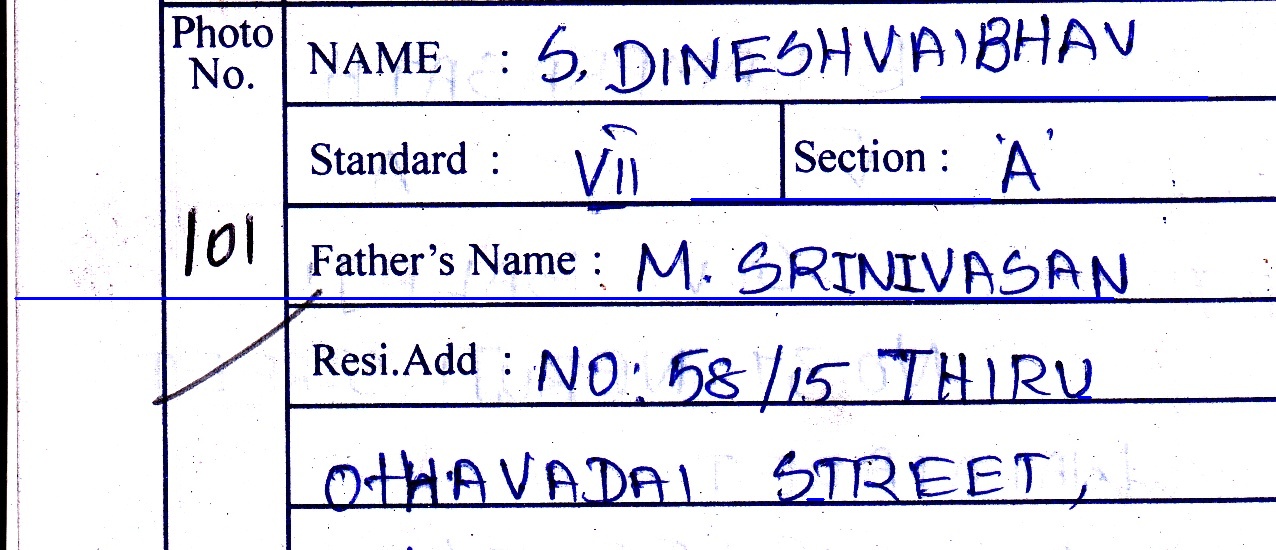 Photo No.
NAME : S. DINESHVAIBHAV
Standard : VII
Section : 'A'
101
Father's Name : M. SRINIVASAN
Resi.Add : NO: 58/15 THIRU
OTHAVADAI STREET,